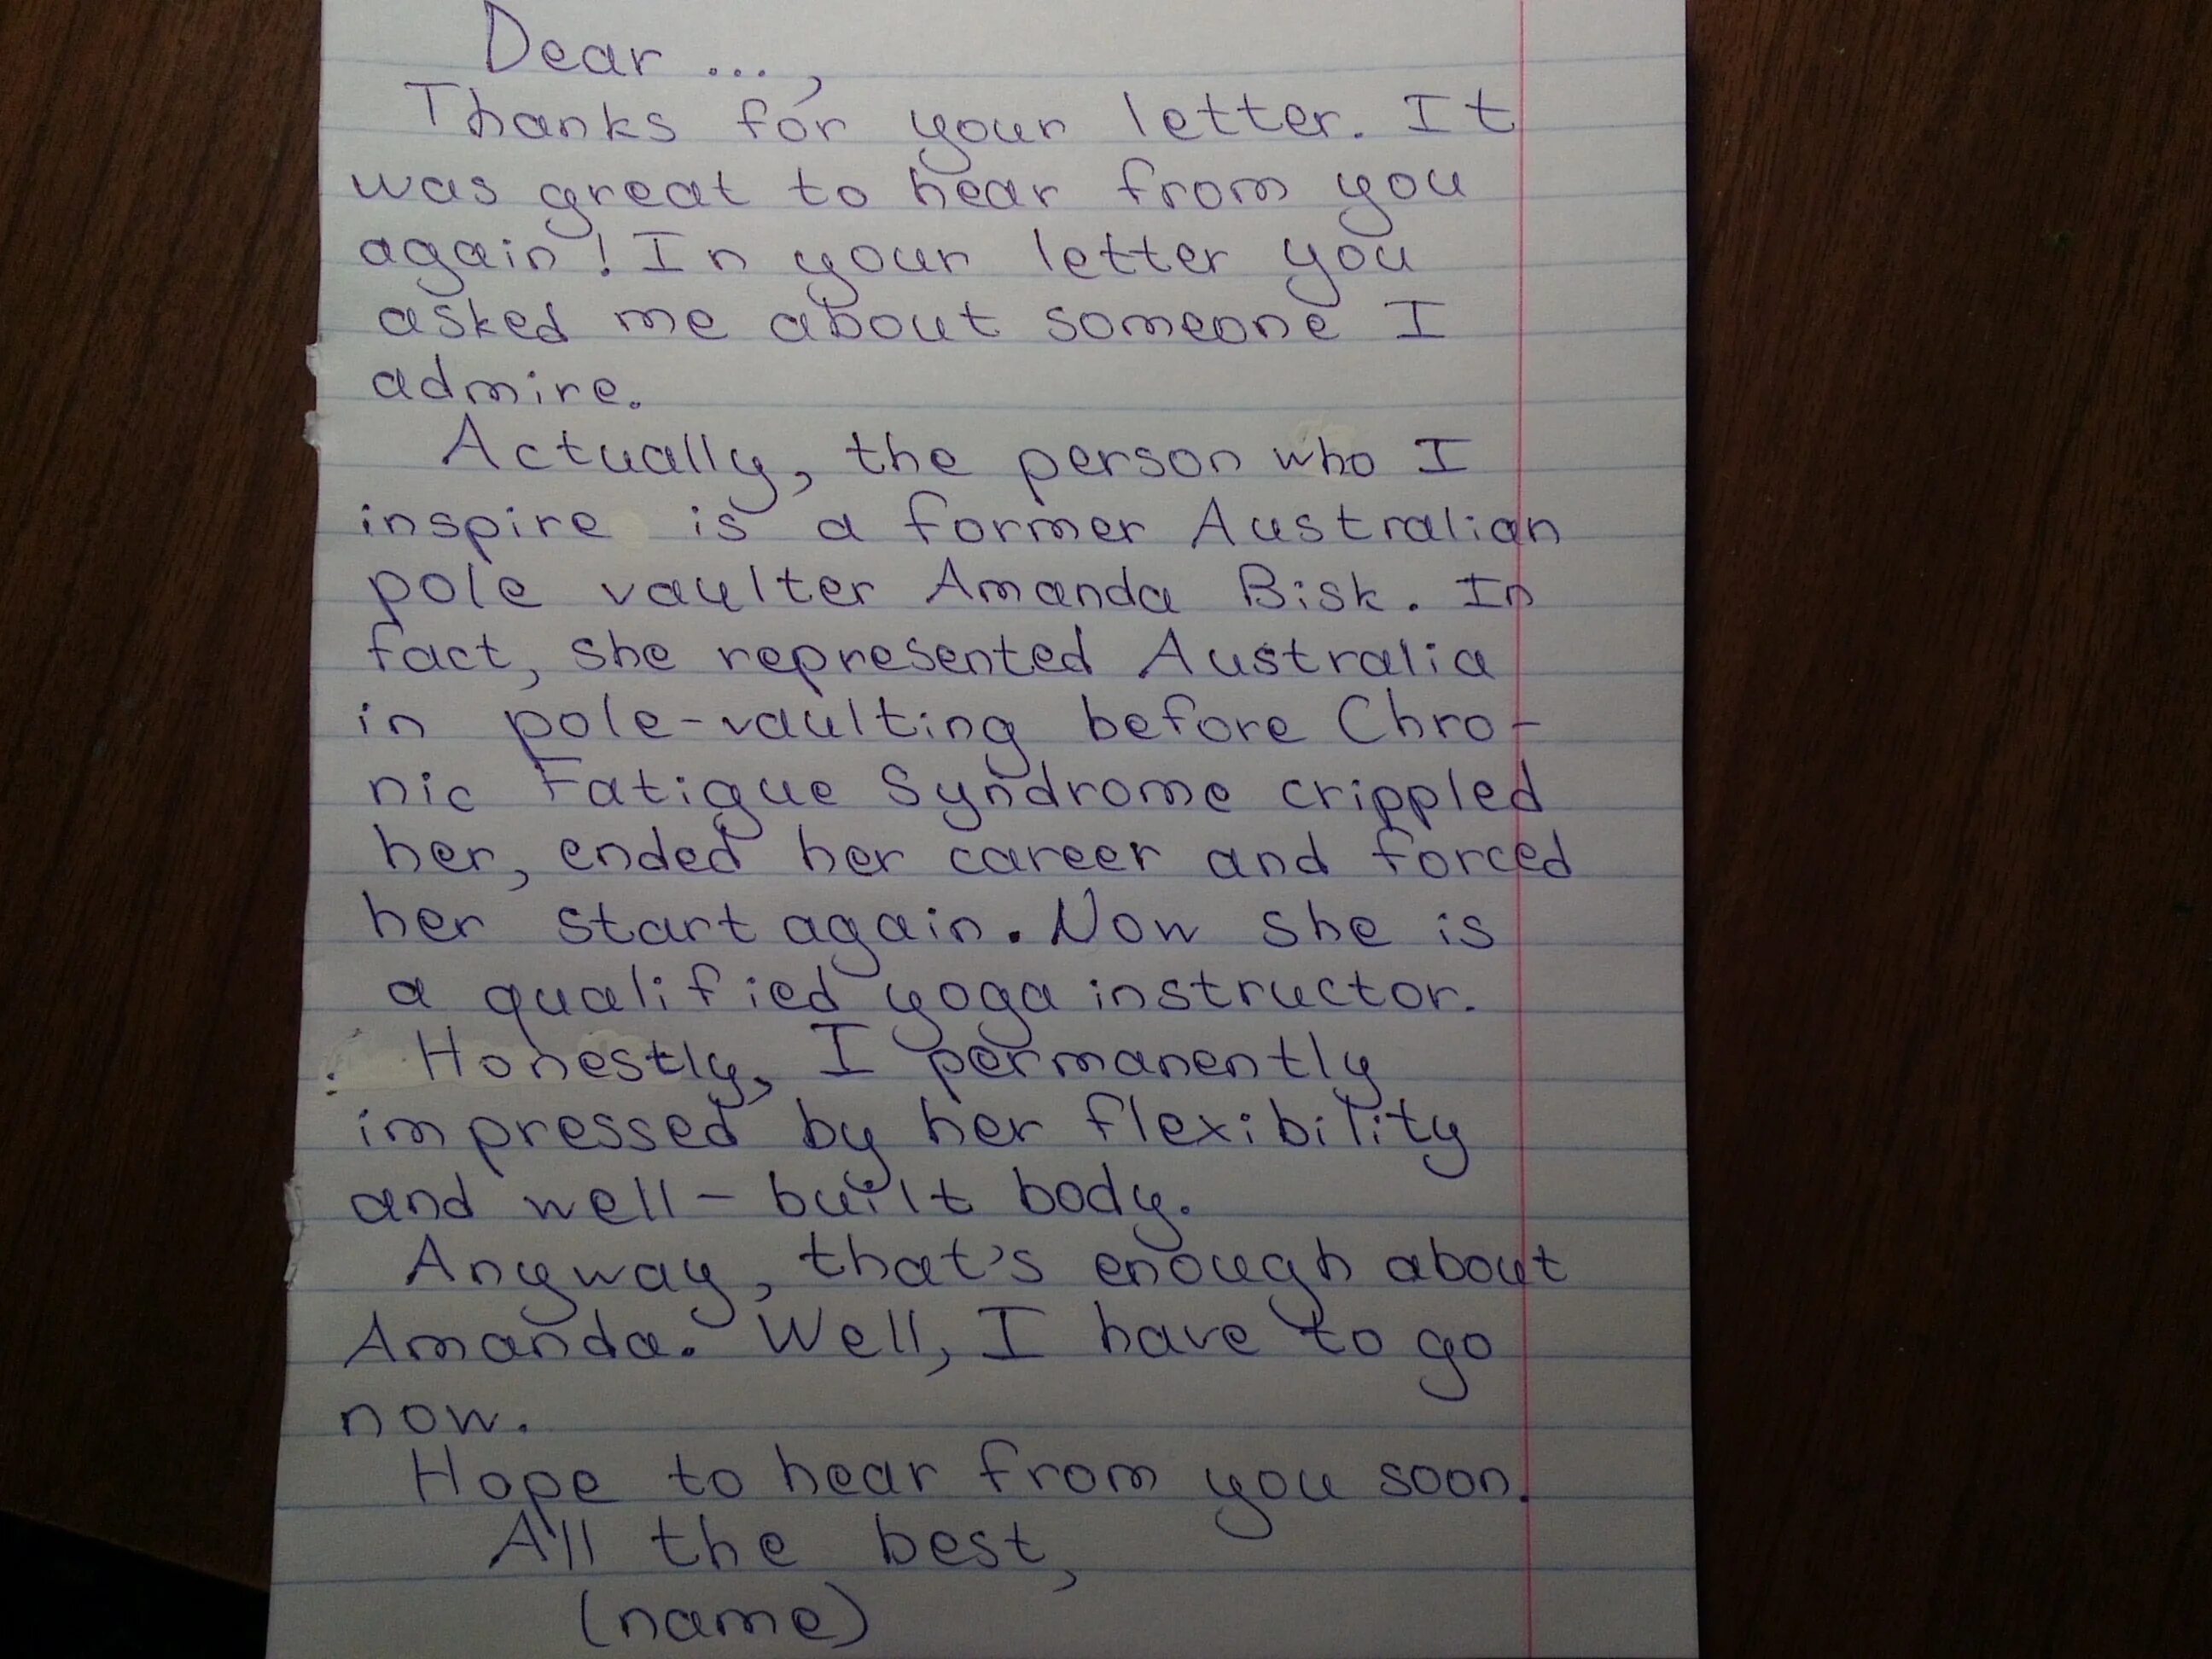 Dear ...,
Thanks for your letter. It
was great to hear from you
again! In your letter you
asked me about someone I
admire.
Actually, the person who I
inspire is a former Australian
pole vaulter Amanda Bisk. In
fact, she represented Australia
in pole-vaulting before Chro-
nic Fatigue Syndrome crippled
her, ended her career and forced
her start again. Now she is
a qualified yoga instructor.
Honestly, I permanently
impressed by her flexibility
and well-built body.
Anyway, that's enough about
Amanda. Well, I have to go
now.
Hope to hear from you soon.
All the best,
(name)